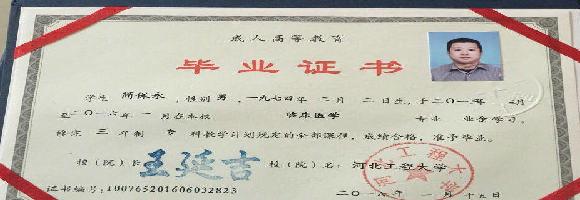 成人高等教育
毕业证书
学生 简保永 ,性别 男 ,一九七四年 二 月 二 日生,于二〇一 年 月
至二〇一六年 一 月在本校 临床医学 专业 业余学习,
修完 三 年制 专 科教学计划规定的全部课程,成绩合格,准予毕业。
校(院)长 王廷吉 校(院)名:河北工程大学
证书编号:100765201606032823 二〇一六年一月十五日